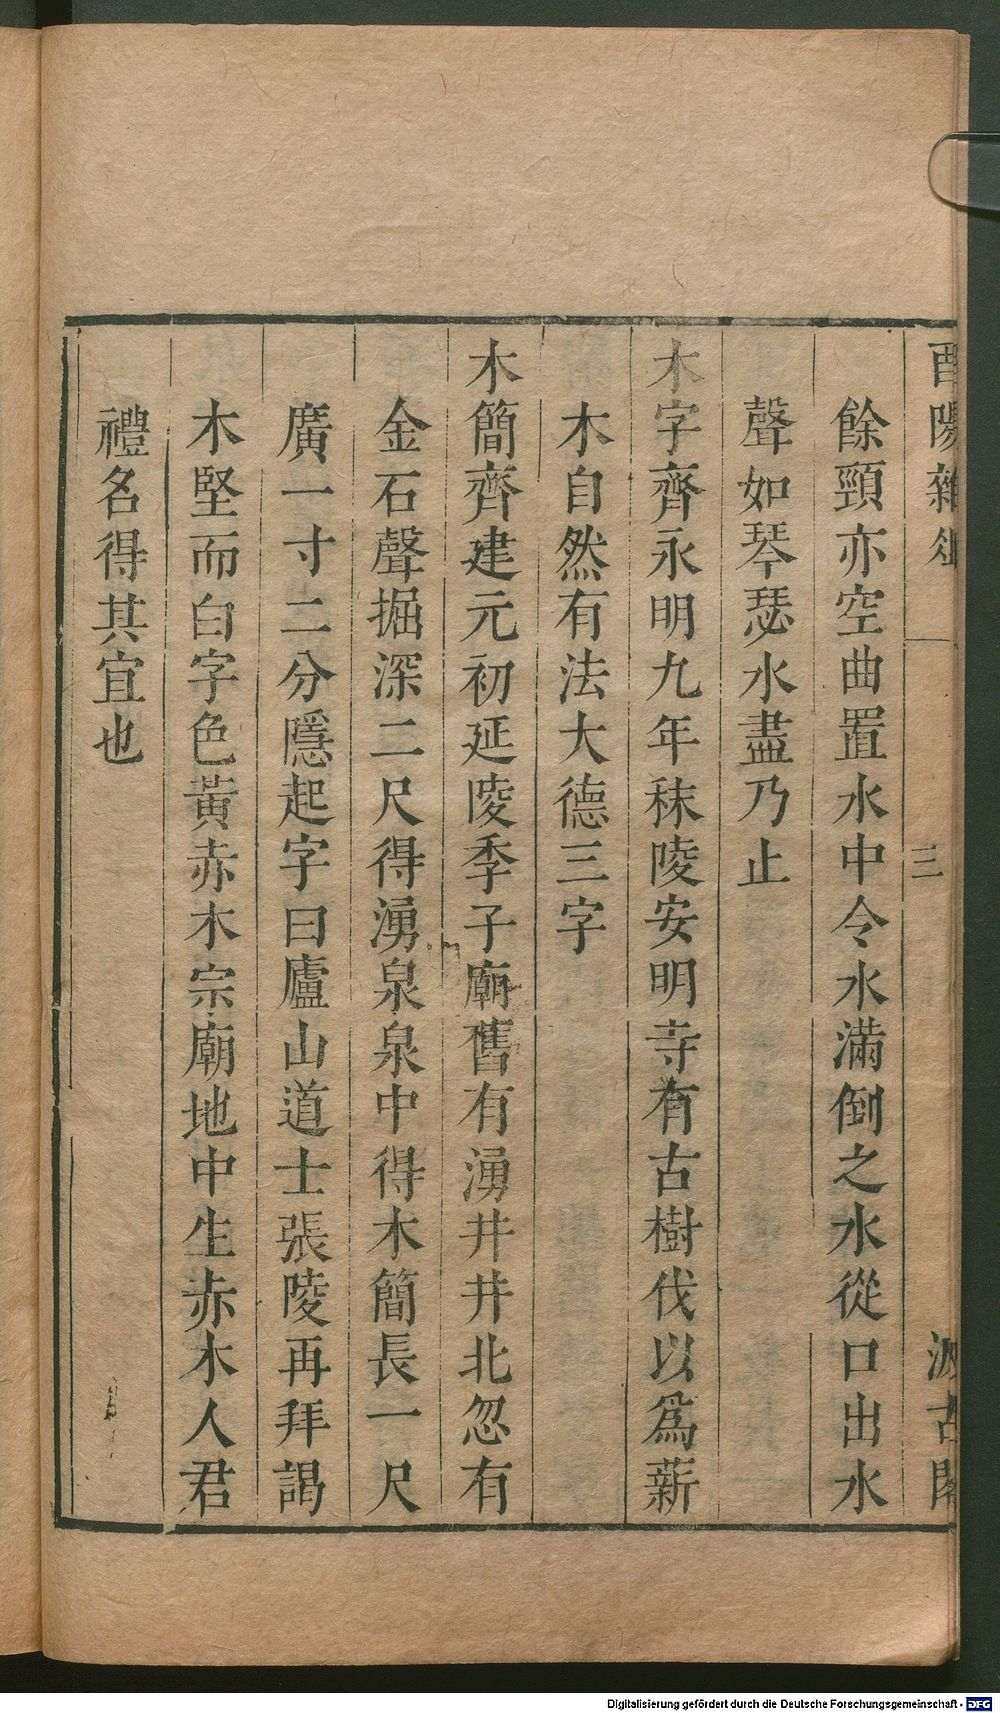 酉陽雜俎
三
汲古閣
餘頸亦空曲置水中令水滿倒之水從口出水
聲如琴瑟水盡乃止
木字齊永明九年秣陵安明寺有古樹伐以爲薪
木自然有法大德三字
木簡齊建元初延陵季子廟舊有湧井井北忽有
金石聲掘深二尺得湧泉泉中得木簡長一尺
廣一寸二分隱起字曰廬山道士張陵再拜謁
木堅而白字色黃赤木宗廟地中生赤木人君
禮名得其宜也
Digitalisierung gefördert durch die Deutsche Forschungsgemeinschaft - DFG